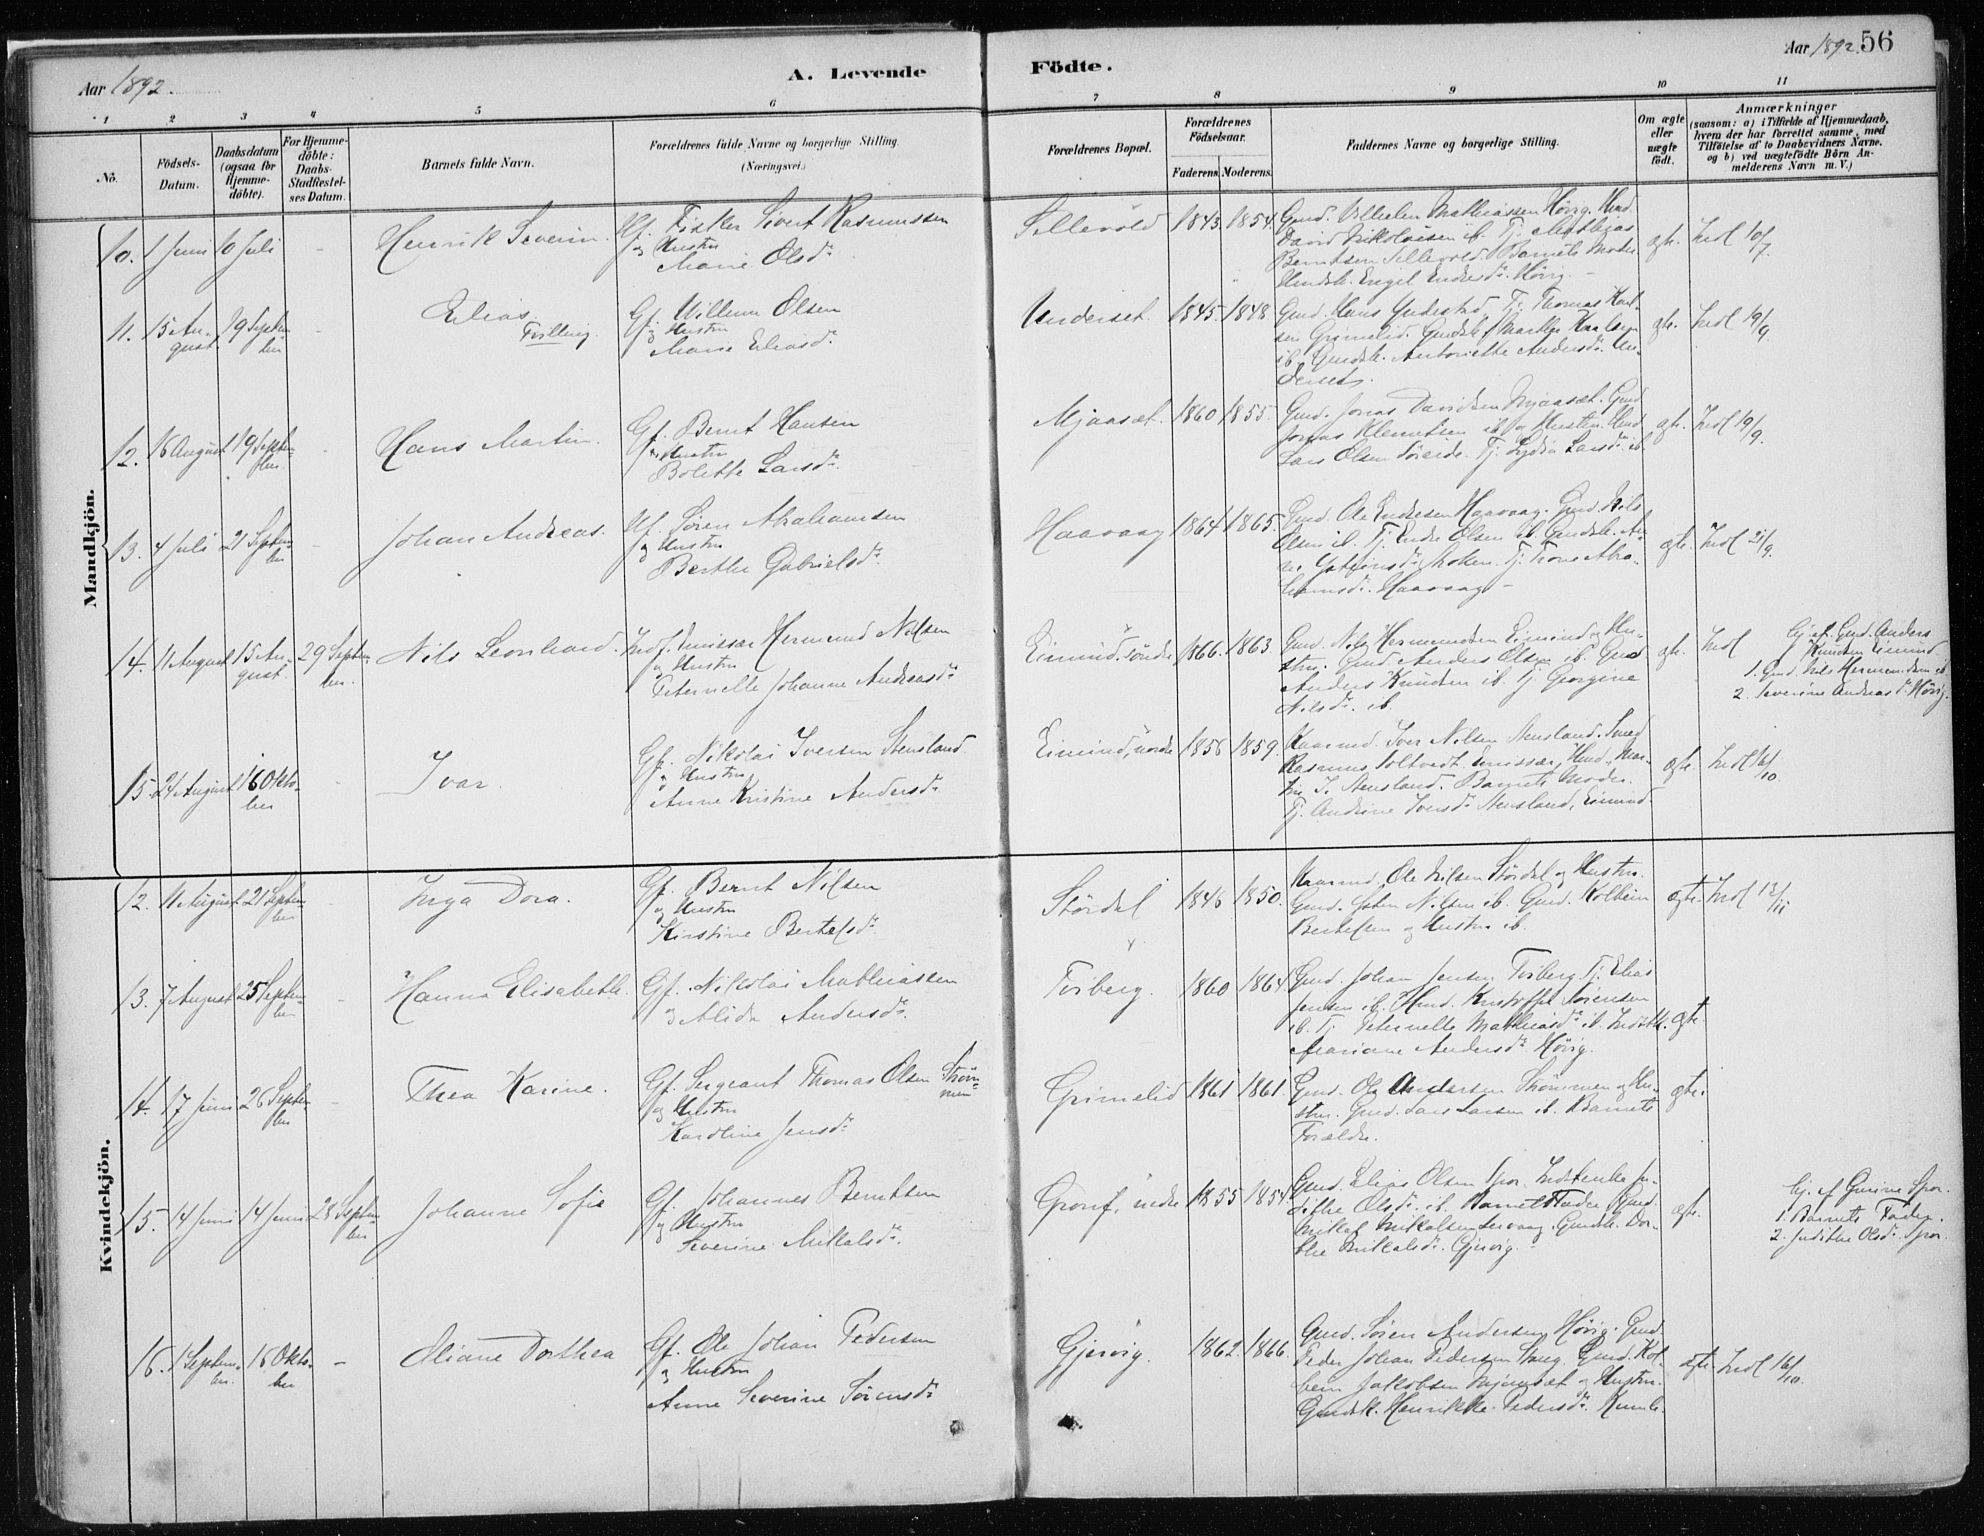 Aar 1892. A. Levende Födte. Aar 1892. 56
1 2 3 4 5 6 7 8 9 10 11
No.
Födsels-Datum.
Daabsdatum (ogsaa for Hjemme-döbte).
For Hjemme-döbte: Daabs-Stadfæstel-ses Datum.
Barnets fulde Navn.
Forældrenes fulde Navne og borgerlige Stilling. (Næringsvei.)
Forældrenes Bopæl.
Forældrenes Födselsaar.
Faderens. Moderens.
Faddernes Navne og borgerlige Stilling.
Om ægte eller uægte födt.
Anmærkninger
(saasom: a) i Tilfælde af Hjemmedaab,
hvem der har forrettet samme, med
Tilföielse af to Daabsvidners Navne.
og b) ved uægtefödte Börn An-
melderens Navn m. V.)
Mandkjön.
10. 1 Juni 10 Juli - Henrik Severin. Hf. Fisker Sivert Rasmussen
og Hustru
Marie Olsd.
Sellevold 1843. 1854. Gmd. Vilhelm Mathiassen Hövig. Hmd.
David Nikolaisen ib. Tj. Mathias
Berntsen Sellevold. Barnets Moder
Hmdsk. Engel Endresd. Hövig.
ægte. Indl 10/7.
11. 15 August. 19 September - Elias. Tvilling. Gf. Willum Olsen
og Hustru
Marie Eliasd.
Underset. 1845. 1848. Gmd. Hans Yndestad, Tj. Thomas Karl-
sen Grimelid. Gmdsk. Marthe
ib. Gmdsk. Antoniette Andersd. Un-
derset.
ægte. Indl 19/9.
12. 16 August 19 September Hans Martin. Gf. Bernt Hansen
og Hustru
Bolette Larsd.
Mjaaset. 1860 1855. Gmd. Jonas Davidsen Mjaaset. Gmd
Jonas Klemetsen ib. og Hustru. Hmd
Lars Olsen Söreide. Tj. Lydia Larsd. ib.
ægte. Indl 19/9.
13. 4 Juli 21 September - Johan Andreas. Hf. Sören Abrahamsen
og Hustru
Berthe Gabrielsd.
Haavaag 1864 1865. Gmd. Ole Endresen Haavaag. Gmd. Nils
Olsen ib. Tj. Endre Olsen ib. Gmdsk. An-
Tj. Trone Abra-
hamsd. Haavaag -
ægte. Indl 21/9.
14. 11 August 15 August. 29 September. Nils Leonhard. Indf. Emissær Hermund Nilsen
og Hustru
Peternelle Johanne Andreasd.
Eimind, söndre 1866. 1863. Gmd. Nils Hermundsen Eimind og Hu-
stru. Gmd. Anders Olsen ib. Gmd
Anders Knudsen ib. Tj. Georgine
Nilsd. ib.
ægte. Indl hj. af. Gmd. Anders
Knudsen Eimind.
1. Gmd. Nils Hermundsen ib.
2. Severine Andreasd. Hövig.
15. 24 August 16 Oktober - Ivar. Gf. Nikolai Iversen Stensland.
og Hustru
Anne Kristine Andersd.
Eimind, nordre 1856 1859. Kaarmd. Iver Nilsen Stensland. Smed
Rasmus Toltvedt Emissær, Hmd. Mar-
Barnets Moder.
Tj. Andrine Iversd. Stensland, Eimind.
ægte. Indl 16/10.
Kvindekjön.
12. 11 August 21 September Inga Dora. Gf. Bernt Nilsen
og Hustru
Kirstine Bertelsd.
Stördal 1846 1850. Kaarmd. Ole Nilsen Stördal og Hustru.
Gmd. Espen Nilsen ib. Gmd. Kolbein
Bertelsen og Hustru ib.
ægte. Indl 13/11
13. 7 August 25 September - Hanna Elisabeth. Gf. Nikolai Mathiassen
og Alida Andersd.
Torberg. 1860 1864. Gmd. Johan Jensen Torberg. Tj. Elias
Jensen ib. Hmd. Kristoffer Sörensen
ib. Tj. Peternelle Mathiasd. ib. Indstk.
Mariane Andersd. Hövig.
ægte.
14. 17 Juni 26 September - Thea Karine. Gf. Sergeant Thomas Olsen Strömmen
og Hustru
Karoline Jensd.
Grimelid 1861 1861. Gmd. Ole Andersen Strömmen og Hu-
stru. Gmd. Lars Larsen ib. Barnets
Forældre.
ægte.
15. 14 Juni 14 Juni 28 September Johanne Sofie Gf. Johannes Berntsen
og Hustru
Severine Mikalsd.
Gronf, nedre 1855 1854. Gmd. Elias Olsen Spor. Indstenke Ju-
dithe Olsd. ib. Barnets Fader. Gmd.
Mikal Mikalsen Gmdsk. Dor-
the Mikalsd. Gjervig.
ægte. hj. af Gurine Spor.
1. Barnets Fader.
2. Judithe Olsd. Spor.
16. 1 September. 16 Oktober - Oliane Dorthea Gf. Ole Johan Pedersen
og Hustru
Anne Severine Sörensd.
Gjervig. 1862. 1866. Gmd. Sören Andersen Hövig. Gmd.
Peder Johan Pedersen Gmd. Kol-
bein Jakobsen Mjaaset og Hustru.
Gmdsk. Henrikke Pedersd.
ægte. Indl 16/10.